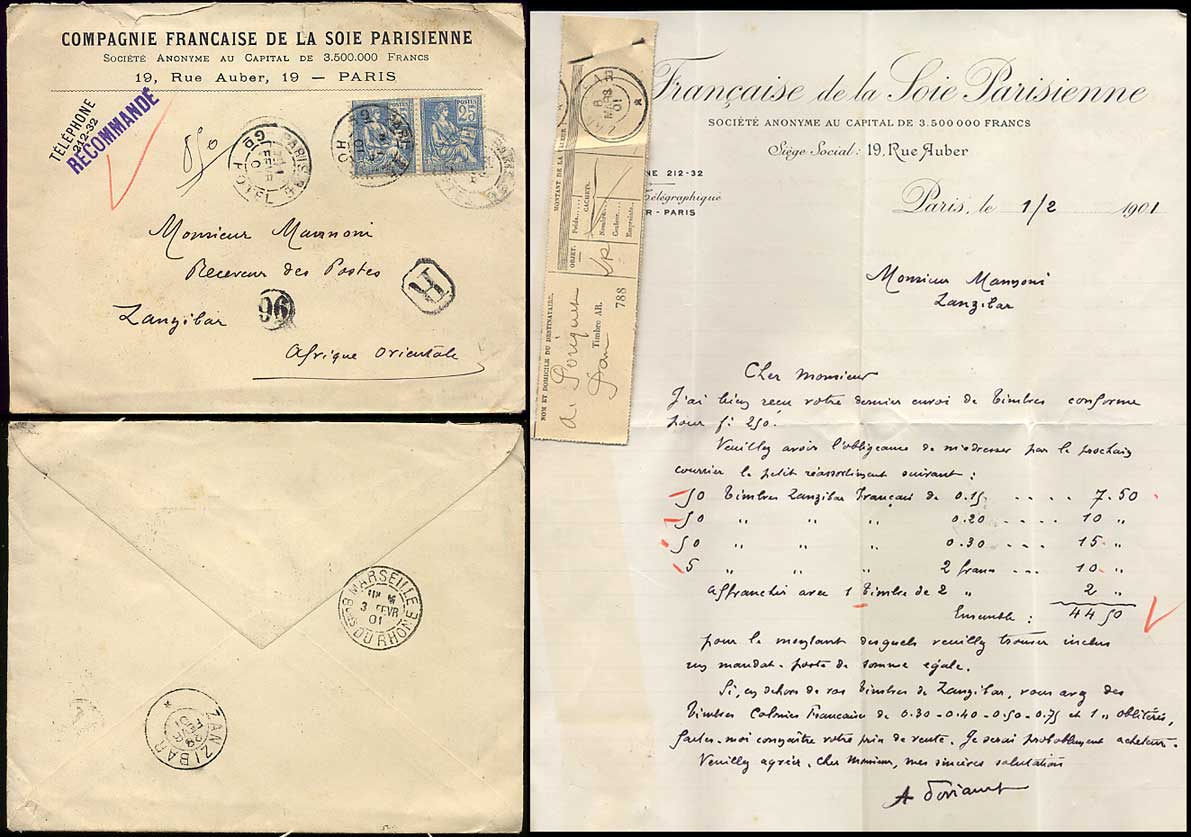 COMPAGNIE FRANCAISE DE LA SOIE PARISIENNE
SOCIÉTÉ ANONYME AU CAPITAL DE 3.500.000 FRANCS
19, RUE AUBER, 19 — PARIS
TÉLÉPHONE
212-32
RECOMMANDÉ
POSTES
25
PARIS
HOTEL
Monsieur Mannoni
Receveur des Postes
Zanzibar
Afrique Orientale
96
R
MARSEILLE
3 FEVR
01
BCHES DU RHONE
ZANZIBAR
FEVR
01
ZAR
8
MARS
01
MONTANT DE LA VALEUR
Poids
CACHETS.
Nombre
Couleur
Empreinte
OBJET.
NOM ET DOMICILE DU DESTINATAIRE.
Timbre AR.
788
Française de la Soie Parisienne
SOCIÉTÉ ANONYME AU CAPITAL DE 3.500000 FRANCS
Siège Social: 19, Rue Auber
NE 212-32
Télégraphique
R-PARIS
Paris, le 1/2 1901
Monsieur Mannoni
Zanzibar
Cher Monsieur
J'ai bien reçu votre dernier envoi de timbres conforme
pour f: 250.
Veuillez avoir l'obligeance de m'adresser par le prochain
courrier le petit réassortiment suivant :
50 Timbres Zanzibar Français de 0.15 .... 7.50
50 " " " 0.20 .... 10 "
50 " " " 0.30 ... 15 "
5 " " " 2 francs .. 10 "
Affranchir avec 1 Timbre de 2 " 2 "
Ensemble : 44 50
pour le montant desquels veuillez trouver inclus
un mandat-poste de somme égale.
Si, en dehors de vos timbres de Zanzibar, vous avez des
timbres Colonies Française de 0.30-0.40-0.50-0.75 et 1 " oblitérés,
faites-moi connaître votre prix de vente. Je serai probablement acheteur.
Veuillez agréer, cher Monsieur, mes sincères salutations